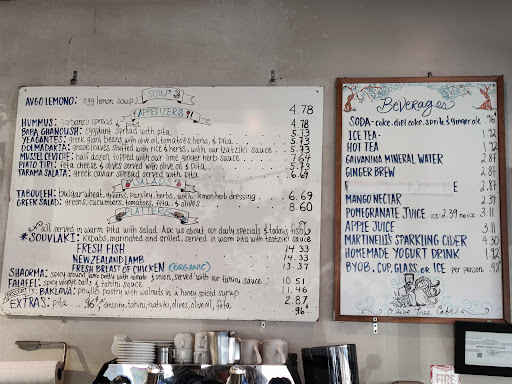 SOUP
AVGO LEMONO: egg lemon soup 4.78
APPETIZERS
HUMMUS: garbanzo spread pita 4.78
BABA GHANOUSH: eggplant spread with pita 5.73
YEAGANTES: greek giant beans with olive oil, tomatoes, herbs, & pita 5.73
DOLMADAKIA: grape leaves stuffed with rice & herbs, with our tzatziki sauce 5.73
MUSSEL CEVICHE: half dozen, topped with our lime ginger herb sauce 7.64
PIATO TIRI: feta cheese & olives served with olive oil & pita 5.73
TARAMA SALATA: greek caviar spread served with pita 6.69
SALADS
TABOULEH: bulgar wheat, greens, parsley, herbs, with lemon-herb dressing 6.69
GREEK SALAD: greens, cucumbers, tomatoes, feta, & olives 8.60
PLATTERS
*all served in warm pita with salad. Ask us about our daily specials & todays fish!
*SOUVLAKI: Kebabs, marinated and grilled, served in warm pita with tzatziki sauce
FRESH FISH 14.33
NEW ZEALAND LAMB 14.33
FRESH BREAST OF CHICKEN (ORGANIC) 13.37
SHAORMA: spicy ground lamb patty with tomato & onion, served with our tahini sauce
FALAFEL: spicy veggie balls & tahini sauce 10.51
11.46
BAKLAVA: phyllo pastry with walnuts in a honey spiced syrup 2.87
EXTRAS: pita .96¢, dressing, tahini, tzatziki, olives, olive oil, feta .96
Beverages
SODA-coke, diet coke, sprite & ginger ale .96¢
ICE TEA 1.92
HOT TEA 1.92
GALVANINA MINERAL WATER 2.87
GINGER BREW 2.87
F E 2.87
MANGO NECTAR 2.39
POMEGRANATE JUICE ice-2.39 no ice 3.11
APPLE JUICE 3.11
MARTINELLI'S SPARKLING CIDER 4.30
HOMEMADE YOGURT DRINK 1.92
BYOB, CUP, GLASS, or ICE per person .48
Olive Tree Cafe